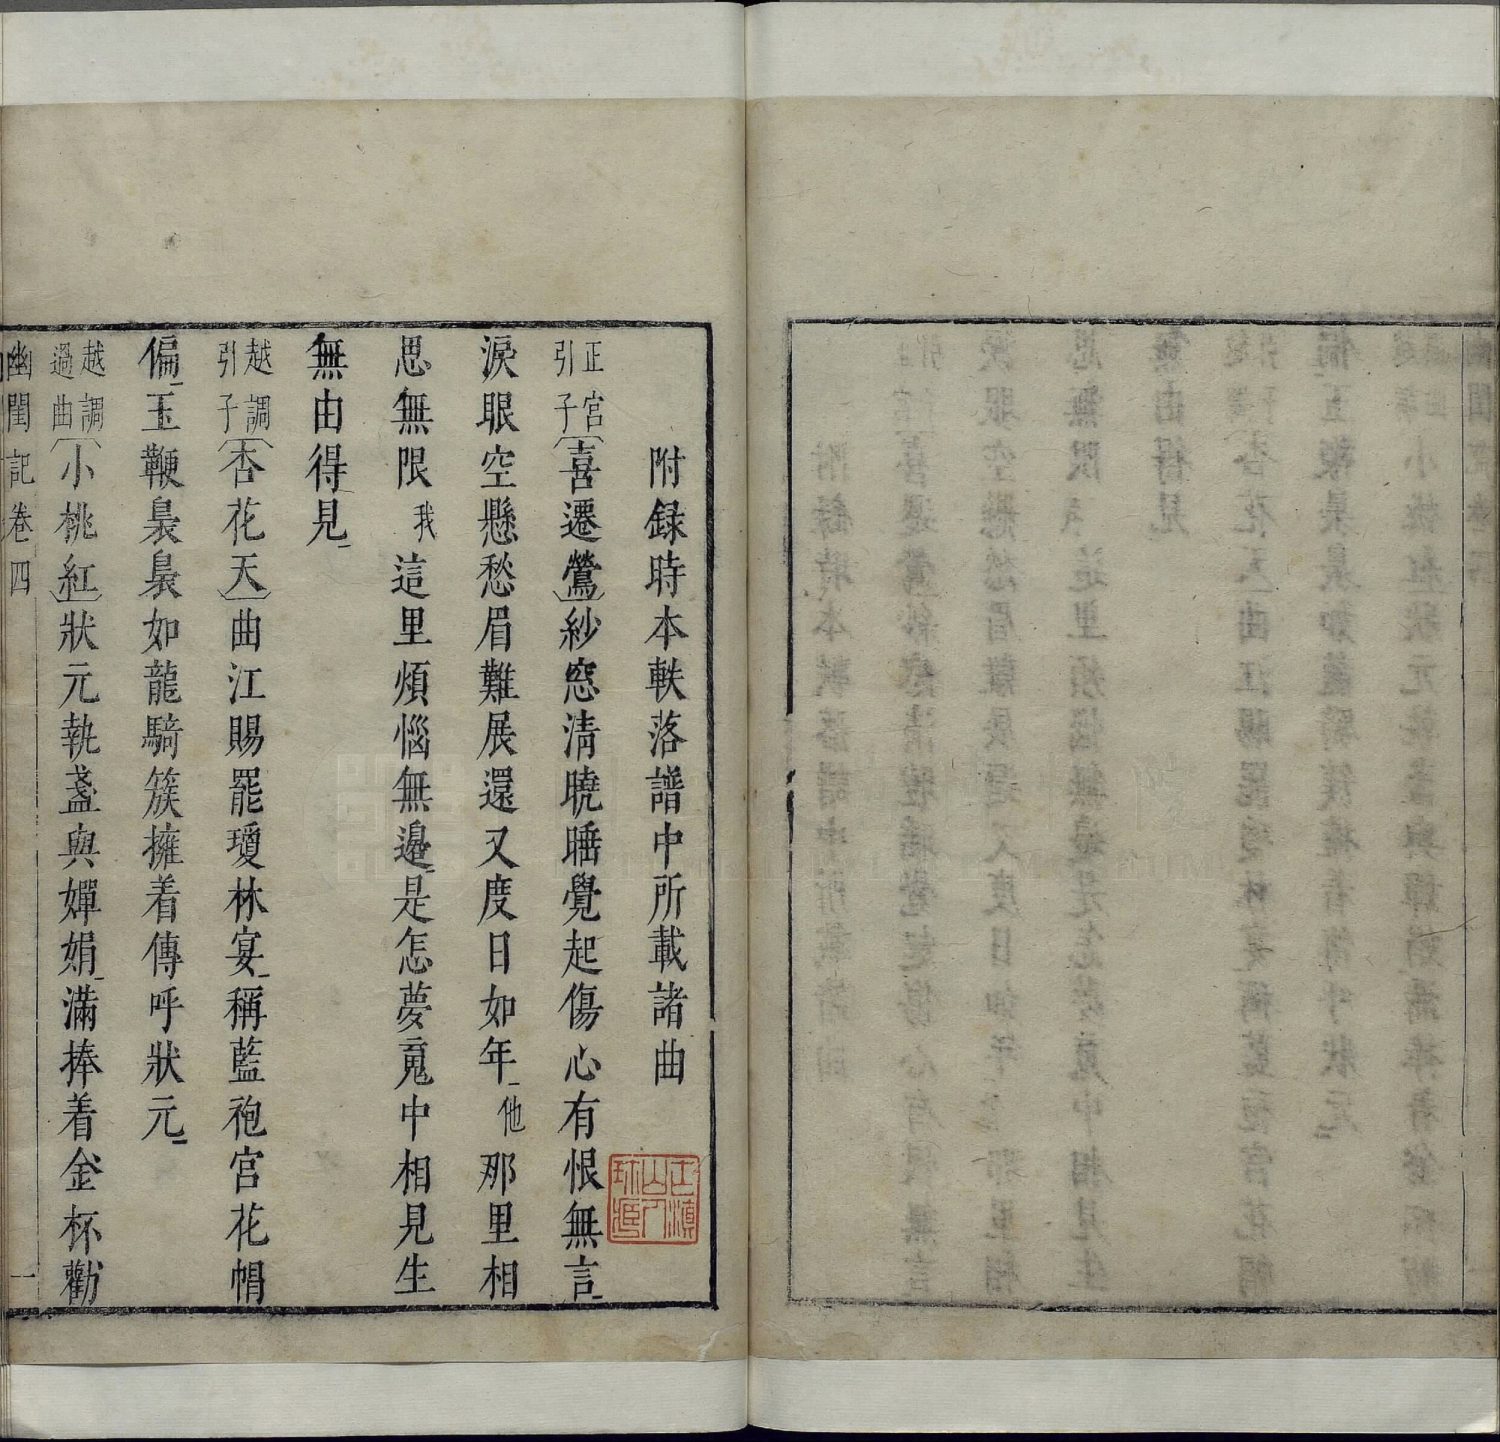 附録時本軼落譜中所載諸曲
正宮引子〔喜遷鶯〕紗窓清曉睡覺起傷心有恨無言
淚眼空懸愁眉難展還又度日如年他那里相
思無限我這里煩惱無邊是怎夢䰟中相見生
無由得見
越調引子〔杏花天〕曲江賜罷瓊林宴稱藍袍宮花帽
偏玉鞭裊裊如龍騎簇擁着傳呼狀元
越調過曲〔小桃紅〕狀元執盞與嬋娟滿捧着金杯勸
幽閨記卷四
一